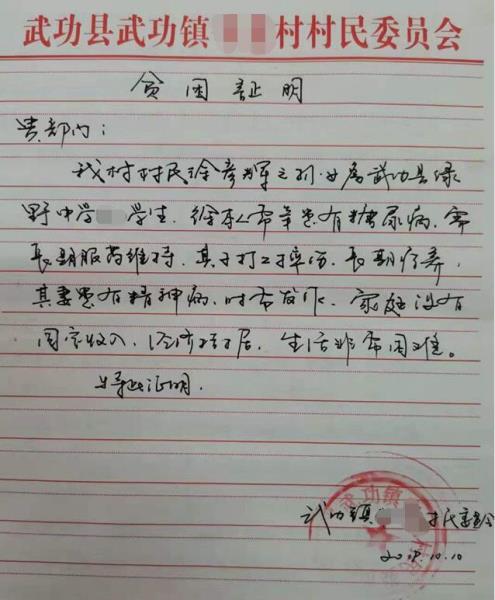 武功县武功镇 村村民委员会
贫困证明
贵部门:
我村村民徐彦辉之孙女属武功县绿
野中学 学生.徐本人常年患有糖尿病,需
长期服药维持.其子打工摔伤.长期疗养,
其妻患有精神病.时常发作.家庭没有
固定收入.经济拮据.生活非常困难。
特此证明.
武功镇 村民委员会
10.10
武功镇